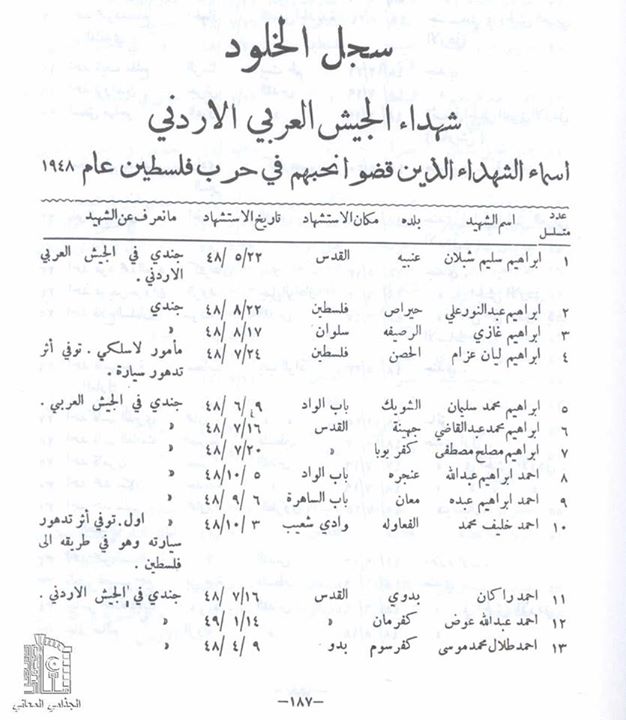 سجل الخلود
شهداء الجيش العربي الاردني
اسماء الشهداء الذين قضوا نحبهم في حرب فلسطين عام ١٩٤٨
عدد متسلسل اسم الشهيد بلده مكان الاستشهاد تاريخ الاستشهاد ما نعرف عن الشهيد
١ ابراهيم سليم شلان عنبه القدس ٤٨/ ٥/٢٢ جندي في الجيش العربي
الاردني .
٢ ابراهيم عبدالنور علي حيراص فلسطين ٤٨/ ٨/٢٢ جندي
٣ ابراهيم غازي الرصيفه سلوان ٤٨/ ٨/١٧ »
٤ ابراهيم ليان عزام الحصن فلسطين ٤٨/ ٧/٢٤ مأمور لاسلكي . توفي أثر
تدهور سيارة .
٥ ابراهيم محمد سليمان الشوبك باب الواد ٤٨/ ٦/ ٩ جندي في الجيش العربي .
٦ ابراهيم محمد عبدالقاضي جهينة القدس ٤٨/ ٧/١٦ »
٧ ابراهيم مصلح مصطفى كفر بوبا » ٤٨/ ٧/٢٠ »
٨ احمد ابراهيم عبدالله عنجره باب الواد ٤٨/١٠/ ٥ »
٩ احمد ابراهيم عبده معان باب الساهرة ٤٨/ ٩/ ٦ »
١٠ احمد خليف محمد الفعاوله وادي شعيب ٤٨/١٠/ ٣ » اول . توفي أثر تدهور
سيارته وهو في طريقه الى
فلسطين .
١١ احمد راكان بدوي القدس ٤٨/ ٧/١٦ جندي في الجيش الاردني .
١٢ احمد عبدالله عوض كفرمان » ٤٩/ ١/١٤ »
١٣ احمد طلال محمد موسى كفرسوم بدو ٤٨/ ٤/ ٩ »
—١٨٧—
الجذامي المعاني